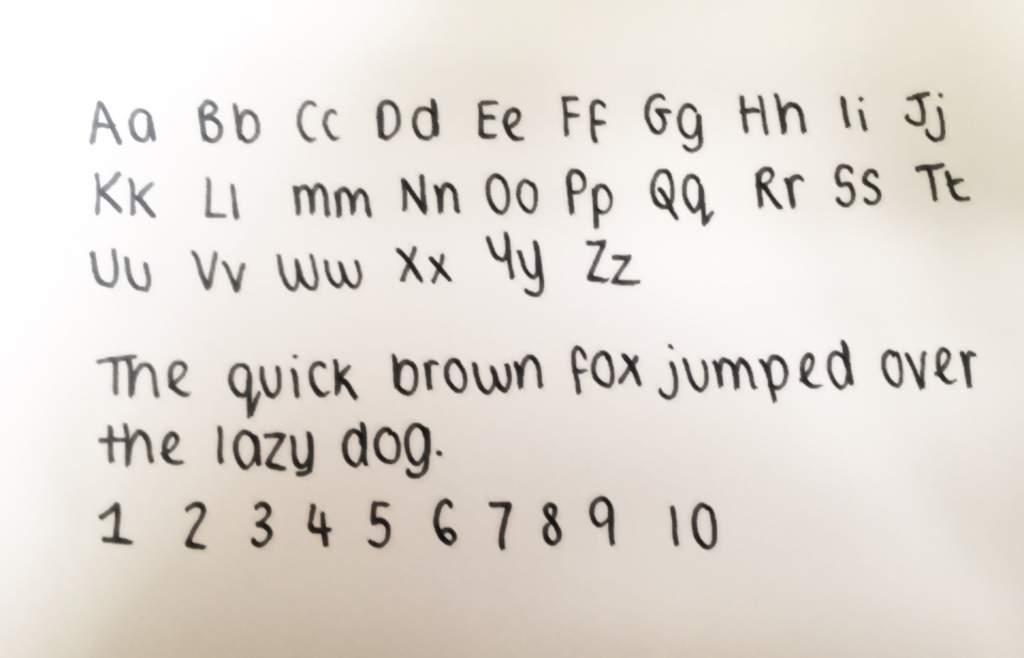 Aa Bb Cc Dd Ee Ff Gg Hh Ii Jj
Kk Ll mm Nn Oo Pp Qq Rr Ss Tt
Uu Vv Ww Xx Yy Zz
The quick brown fox jumped over
the lazy dog.
1 2 3 4 5 6 7 8 9 10